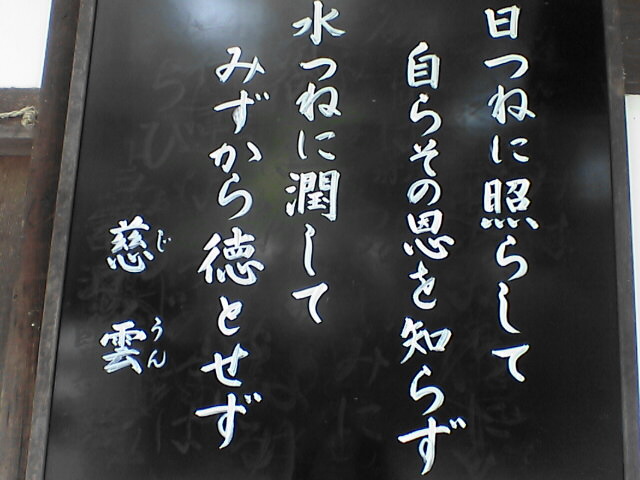 日つねに照らして
自らその恩を知らず
水つねに潤して
みずから徳とせず
慈雲
じうん